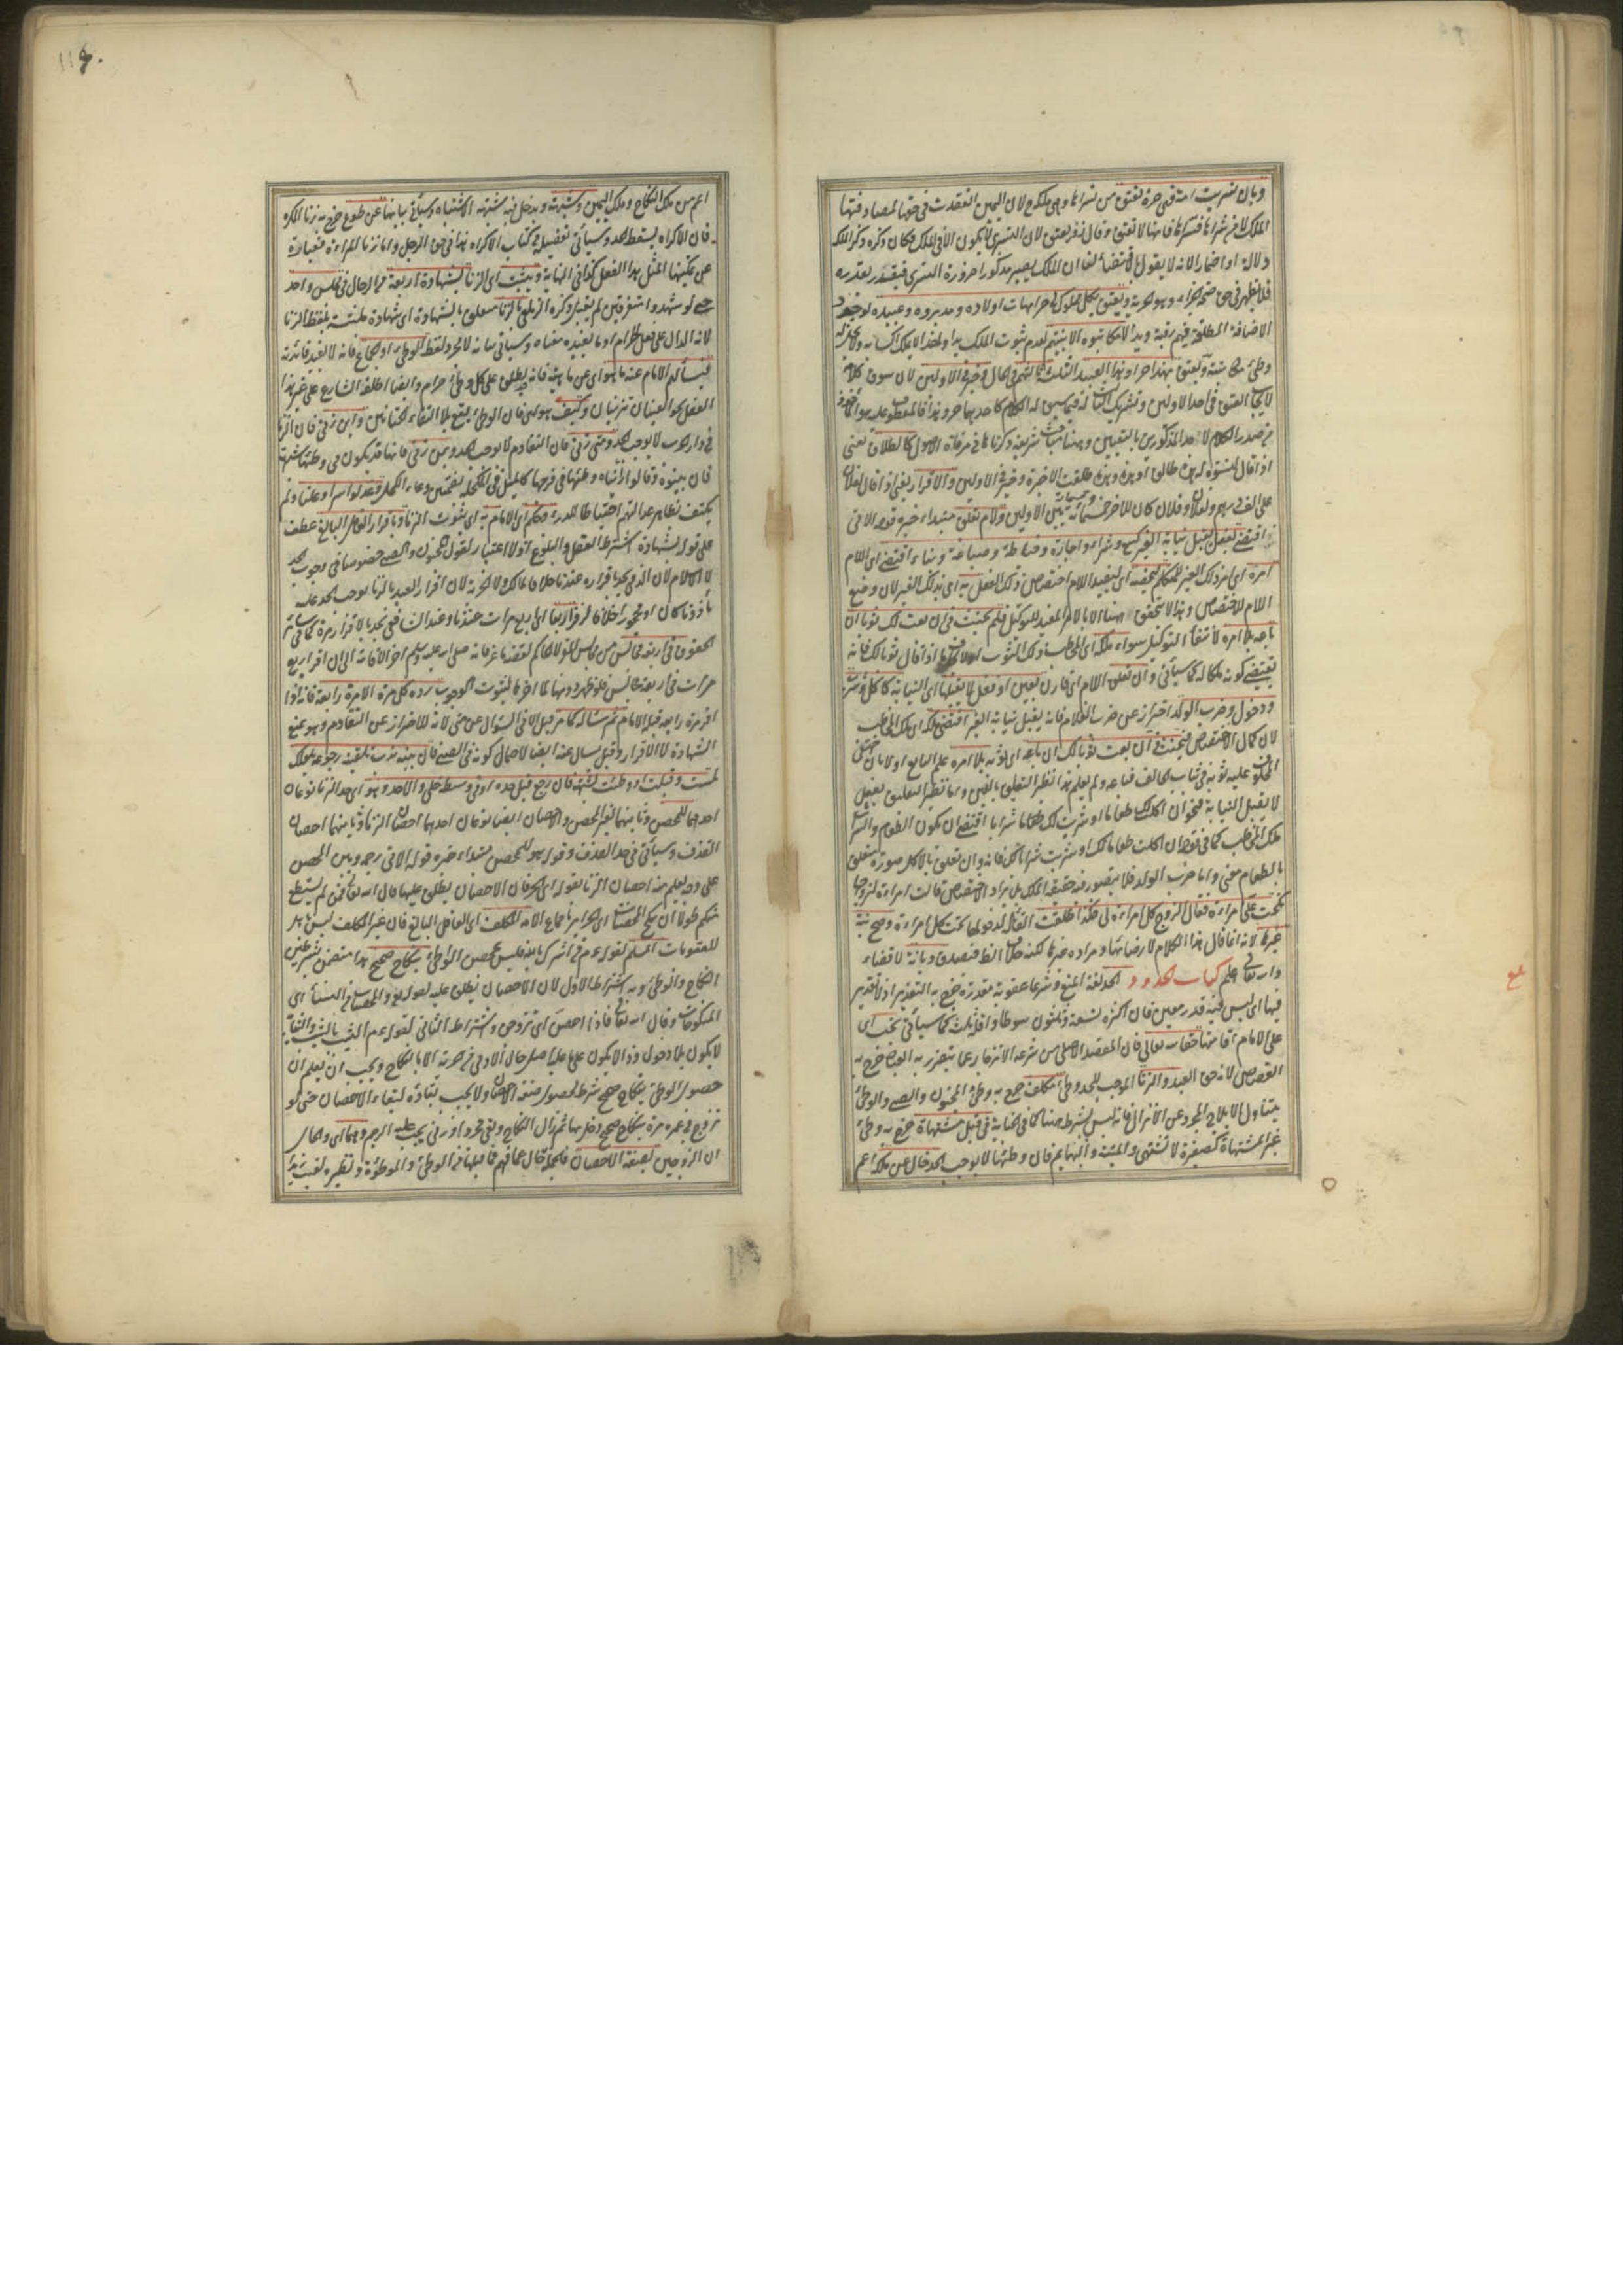 وبان تسريت امة فهي حرة تعتق من تسراها وهي ملكه ح لان اليمين انعقدت في حقها لمصادفتها
الملك لا من شراها فتسراها فانها لا تعتق وقال زفر يعتق لان التسري لا يكون الا في الملك فكان ذكره ذكر الملك
دلالة او اضمارا لانه لا يقول بالاقتضاء لنا ان الملك يصير مذكورا ضرورة التسري فيتقدر بقدره
فلا يظهر في حق صحة الجزاء وهو الحرية ويعتق بكل مملوك لي حر امهات اولاده ومدبروه وعبيده لوجود
الاضافة المطلقة فيهم رقبة ويدا لا مكاتبوه الا بنيتهم لعدم ثبوت الملك يدا ولهذا لا يملك اكسابه ولا يحل له
وطئ مكاتبته ويعتق بهذا حر او هذا وهذا لعبيده الثلث ثالثهم في الحال وخير في الاولين لان سوق الكلام
لايجاب العتق في احد الاولين وتشريك الثالث له فيما سيق له الكلام كاحدهما حر وهذا فالمعطوف عليه هو المأخوذ
من صدر الكلام لا احد المذكورين بالتعيين وههنا مباحث شريفة ذكرناها في مرقاة الاصول كالطلاق يعني
اذا قال لنسوة له هذه طالق او هذه وهذه طلقت الاخيرة وخير في الاوليين والاقرار يعني اذا قال لفلان
علي الف درهم ولفلان وفلان كان للاخر خمسمائة وخمسمائة بين الاولين ولام تعلق مبتداء خبره قوله الاتي
اقتضى بفعل يقبل نيابة الغير كبيع وشراء واجارة وخياطة وصياغة وبناء اقتضى اي اللام
امره اي امر ذلك الغير للمتكلم ليخصه اي ليفيد اللام اختصاص ذلك الفعل به اي بذلك الغير لان وضع
اللام للاختصاص وهذا لا يتحقق ههنا الا بالامر المفيد للتوكيل فلم يحنث في ان بعت لك ثوبا ان
باعه بلا امره لانتفاء التوكيل سواء ملكه اي المخاطب ذلك الثوب اولا بخلاف ما اذا قال ثوبا لك فانه
يقتضي كونه ملكا له كما سيأتي وان تعلق اللام اي قارن بعين او فعل لا يقبلها اي النيابة كاكل وشرب
ودخول وضرب الولد احتراز عن ضرب الغلام فانه يقبل نيابة الغير اقتضى ملكه اي ملك المخاطب
لان كمال الاختصاص فيحنث في ان بعت ثوبا لك ان باعه اي ثوبه بلا امره علم البايع اولا بان خفي
المحلوف عليه ثوبه في ثياب الحالف فباعه ولم يعلم هذا نظير التعليق بالعين واما نظير التعليق بفعل
لا يقبل النيابة فنحو ان اكلت لك طعاما او شربت لك شرابا اقتضى ان يكون الطعام والشراب
ملك المخاطب كما في قوله ان اكلت طعاما لك او شربت شرابا لك فانه وان تعلق بالاكل صورة متعلق
بالطعام معنى واما ضرب الولد فلا يتصور فيه حقيقة الملك بل يراد الاختصاص قالت امراءة لزوجها
نكحت علي امراءة فقال الزوج كل امراءة لي فكذا طلقت القائلة لدخولها تحت كل امراءة وصح نية
غيرها لانه انما قال هذا الكلام لارضائها ومراده غيرها لكنه خلاف الظاهر فيصدق ديانة لا قضاء
والله تعالى اعلم كتاب الحدود الحد لغة المنع وشرعا عقوبة مقدرة خرج به التعزير اذ لا تقدير
فيها اي ليس فيه قدر معين فان اكثره تسعة وثلثون سوطا واقله ثلث كما سيأتي تجب اي
على الامام اقامتها حقا لله تعالى فان المقصد الاصلي من شرعه الانزجار عما يتضرر به العباد خرج به
القصاص لانه حق العبد والزنا الموجب للحد وطئ مكلف خرج به وطئ المجنون والصبي والوطئ
يتناول الايلاج المجرد عن الانزال فانه ليس بشرط ههنا كما في الجنابة في قبل مشتهاة خرج به وطئ
غير المشتهاة كصغيرة لا تشتهى والميتة والبهايم فان وطئها لا يوجب الحد خال عن ملك اعم
اعم من ملك النكاح وملك اليمين وشبهته ويدخل فيه شبهة الاشتباه وسيأتي بيانها عن طوع خرج به زنا المكره
فان الاكراه يسقط الحد وسيأتي تفصيله في كتاب الاكراه هذا في حق الرجل واما زنا المراءة فعبارة
عن تمكينها لمثل هذا الفعل كذا في النهاية ويثبت اي الزنا بشهادة اربعة من الرجال في مجلس واحد
حتى لو شهدوا متفرقين لم يعتبر ذكره الزيلعي بالزنا متعلق بالشهادة اي شهادة ملتبسة بلفظ الزنا
لانه الدال على فعل الحرام او ما يفيد معناه وسيأتي بيانه لا مجرد لفظ الوطئ او الجماع فانه لا يفيد فائدته
فيسألهم الامام عنه ما هو اي عن ماهيته فانه قد يطلق على كل وطئ حرام وايضا اطلقه الشارع على غير هذا
الفعل نحو العينان تزنيان وكيف هو لان الوطئ يقع بلا التقاء الختانين واين زنى فان الزنا
في دار الحرب لا يوجب الحد ومتى زنى فان التقادم لا يوجب الحد وبمن زنى فانها قد يكون من وطئها شبهة
فان بينوه وقالوا رأيناه وطئها في فرجها كالميل في المكحلة بضمتين وعاء الكحل وعدلوا سرا وعلنا ولم
يكتف بظاهر عدالتهم احتياطا للدرء وحكم اي الامام به اي بثبوت الزنا وباقرار العاقل البالغ عطف
على قوله بشهادة اشترط العقل والبلوغ اذ لا اعتبار لقول المجنون والصبي خصوصا في وجوب الحد
لا الاسلام لان الذمي يحد باقراره عندنا خلافا لمالك ولا الحرية لان اقرار العبد بالزنا يوجب الحد عليه
مأذونا كان او محجورا خلافا لزفر اربعا اي اربع مرات عندنا وعند الشافعي يحد بالاقرار مرة كما في سائر
الحقوق في اربعة مجالس من مجالس المقر لا الحاكم لقصة ماعز فانه صلى الله عليه وسلم اخر الاقامة الى ان اقر اربع
مرات في اربعة مجالس فلو ظهر دونها لما اخرها لثبوت الوجوب رده كل مرة الا مرة رابعة فانه اذا
اقر مرة رابعة قبله الامام ثم سأله كما مر قيل الا في السؤال عن متى لانه للاحتراز عن التقادم وهو يمنع
الشهادة لا الاقرار وقيل يسال عنه ايضا لاحتمال كونه في الصبي فان بينه ندب تلقينه رجوعه بلعلك
لمست او قبلت او وطئت بشبهة فان رجع قبل حده او في وسطه خلي والا حد وهو اي حد الزنا نوعان
احدهما للمحصن وثانيهما لغير المحصن والاحصان ايضا نوعان احدهما احصان الزنا وثانيهما احصان
القذف وسيأتي في حد القذف وقوله هو للمحصن مبتداء خبره قوله الاتي رجمه وبين المحصن
على وجه يعلم منه احصان الزنا بقوله اي الحر فان الاحصان يطلق عليها قال الله تعالى فمن لم يستطع
منكم طولا ان ينكح المحصنات اي الحرائر باجماع الامة المكلف اي العاقل البالغ فان غير المكلف ليس باهل
للعقوبات المسلم لقوله عم من اشرك بالله فليس بمحصن الواطئ بنكاح صحيح هذا متضمن لشرطين
النكاح والوطئ وبه اشتراط الاول لان الاحصان يطلق عليه لقوله تع والمحصنات من النساء اي
المنكوحات وقال الله تعالى فاذا احصن اي تزوجن واشتراط الثاني لقوله عم الثيب بالثيب والثيابة
لا يكون بلا دخول وذا لا يكون علما على اصل حال الادمي من حرية الا بالنكاح ويجب ان يعلم ان
حصول الوطئ بنكاح صحيح شرط لحصول صفة الاحصان ولا يجب بقاؤه لبقاء الاحصان حتى لو
تزوج في عمره مرة بنكاح صحيح ودخل بها ثم زال النكاح وبقي مجردا وزنى يجب عليه الرجم وهما اي والحال
ان الزوجين بصفة الاحصان فالجملة حال عما فهم مما قبلها من الواطئ والموطوءة ونظيره لقيت زيدا